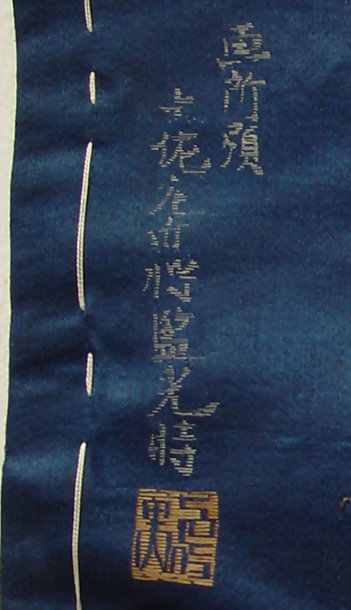 画所預
土佐左近将監光時